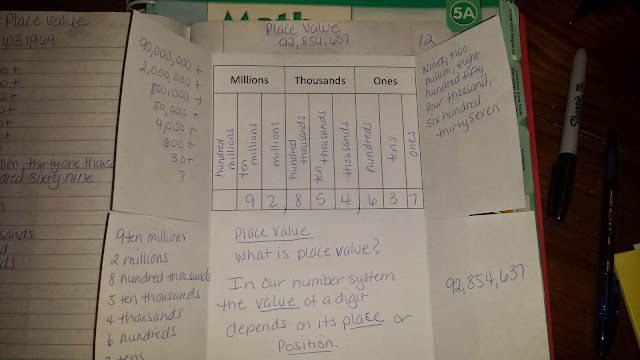 Place Values
1031969
Math
5A
Place Value
92,854,637
12
90,000,000 +
2,000,000 +
800,000 +
50,000 +
4,000 +
600 +
30 +
7
Millions Thousands Ones
hundred millions
ten millions
millions
hundred thousands
ten thousands
thousands
hundreds
tens
ones
9 2 , 8 5 4 , 6 3 7
Ninety two
million, eight
hundred fifty
four thousand,
six hundred
thirty seven
thirty one thous
dred sixty nine
sands
ds
9 ten millions
2 millions
8 hundred thousands
5 ten thousands
4 thousands
6 hundreds
3 tens
Place Value
What is place value?
In our number system,
the value of a digit
depends on its place or
Position.
92,854,637
Sharpie